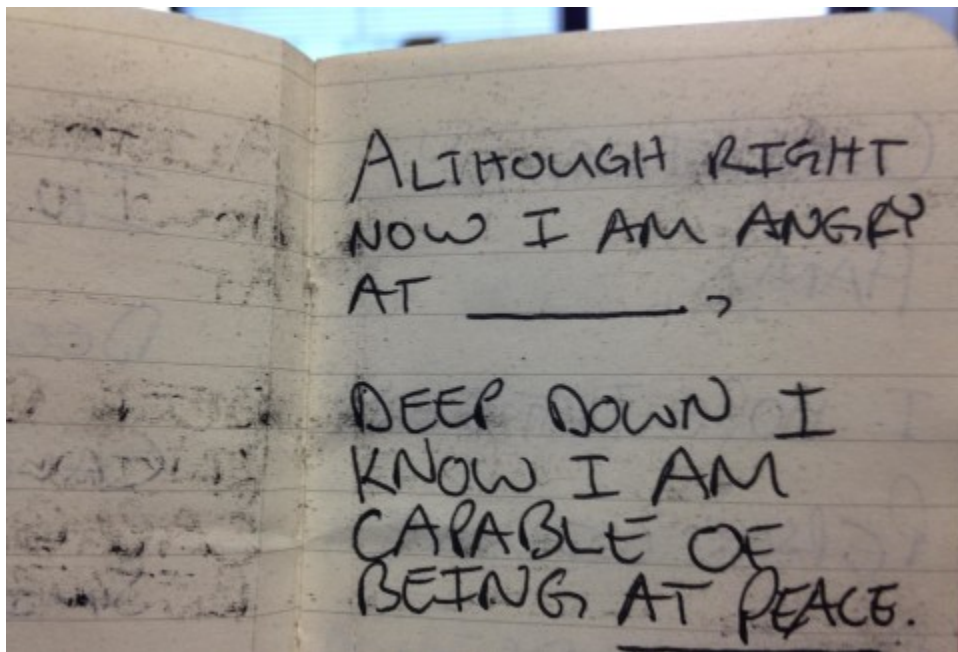 ALTHOUGH RIGHT
NOW I AM ANGRY
AT ________,
DEEP DOWN I
KNOW I AM
CAPABLE OF
BEING AT PEACE.